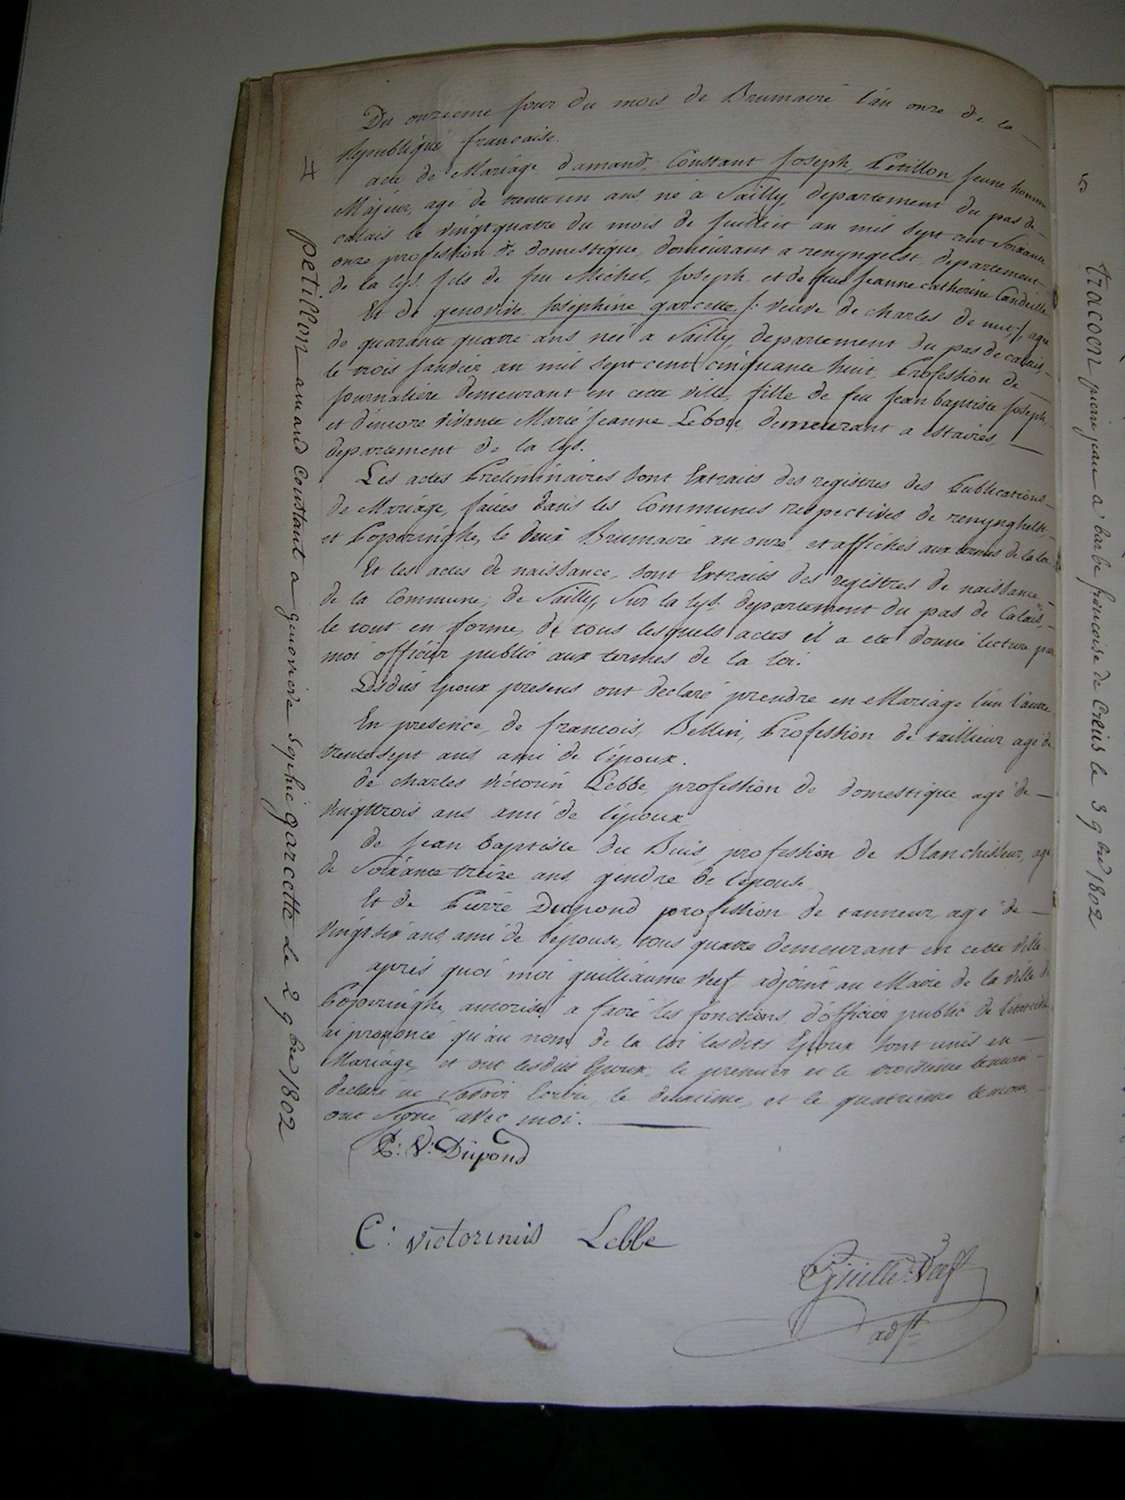 Du onzieme jour du mois de Brumaire l'an onze de la
Republique francaise.
acte de Mariage d'amand, Constant Joseph, Petillon, jeune homme
Majeur, agé de trente un ans, né a Sailly, departement du pas de
calais le vingtquatre du mois de juillet an mil sept cent Soixante
onze profession de domestique, demeurant a renyngelst departement
de la lys. fils de feu Michel, Joseph et de feue Jeanne catherine
Et de genovive Josephine garcette /: veuve de charles de :/ agée
de quarante quatre ans née a Sailly, departement du pas de calais,
le trois janvier an mil sept cent cinquante huit, Profession de
journaliere demeurant en cette ville, fille de feu jean baptiste Joseph,
et d'encore vivante Marie Jeanne Lebon, demeurant a estaires,
departement de la lys.
Les actes Preliminaires sont Extraits des registres des Publications
de Mariage, faites dans les Communes respectives de renynghelst,
et Poperinghe, le deux Brumaire an onze, et affichés aux termes de la loi
Et les actes de naissance, sont Extraits des registres de naissance
de la Commune, de Sailly, Sur la lys. departement du pas de Calais,
le tout en forme, de tous lesquels actes il a eté donné lecture par
moi officier public aux termes de la loi.
Lesdits Epoux presens ont declaré prendre en Mariage l'un l'autre
En presence, de francois, Bellin, Profession de taillieur, agé de
trente sept ans ami de l'epoux.
de charles victorin Lebbe, profession de domestique agé de
vingttrois ans ami de l'epoux
de jean baptiste du Buis, profession de Blanchisseur, agé
de Soixante treize ans, gendre de l'epouse
Et de Pierre Dupond profession de tanneur, agé de
vingt six ans, ami de l'epouse, tous quatre demeurant en cette ville
après quoi moi guilliaume Veef adjoint au Maire de la ville de
Poperinghe, autorisé a faire les fonctions d'officier public de
ai prononcé qu'au nom de la loi lesdits Epoux sont unis en
Mariage, et ont lesdits Epoux, le premier et le troisieme temoin
declaré ne Savoir Ecrire, le deuxieme, et le quatrieme temoin,
ont Signé avec moi.
P: V: Dupond
C: victorinus Lebbe
Guille: Veef
adjt
4
petillon amand Constant a genovive Sophie garcette le 2 9bre 1802
5